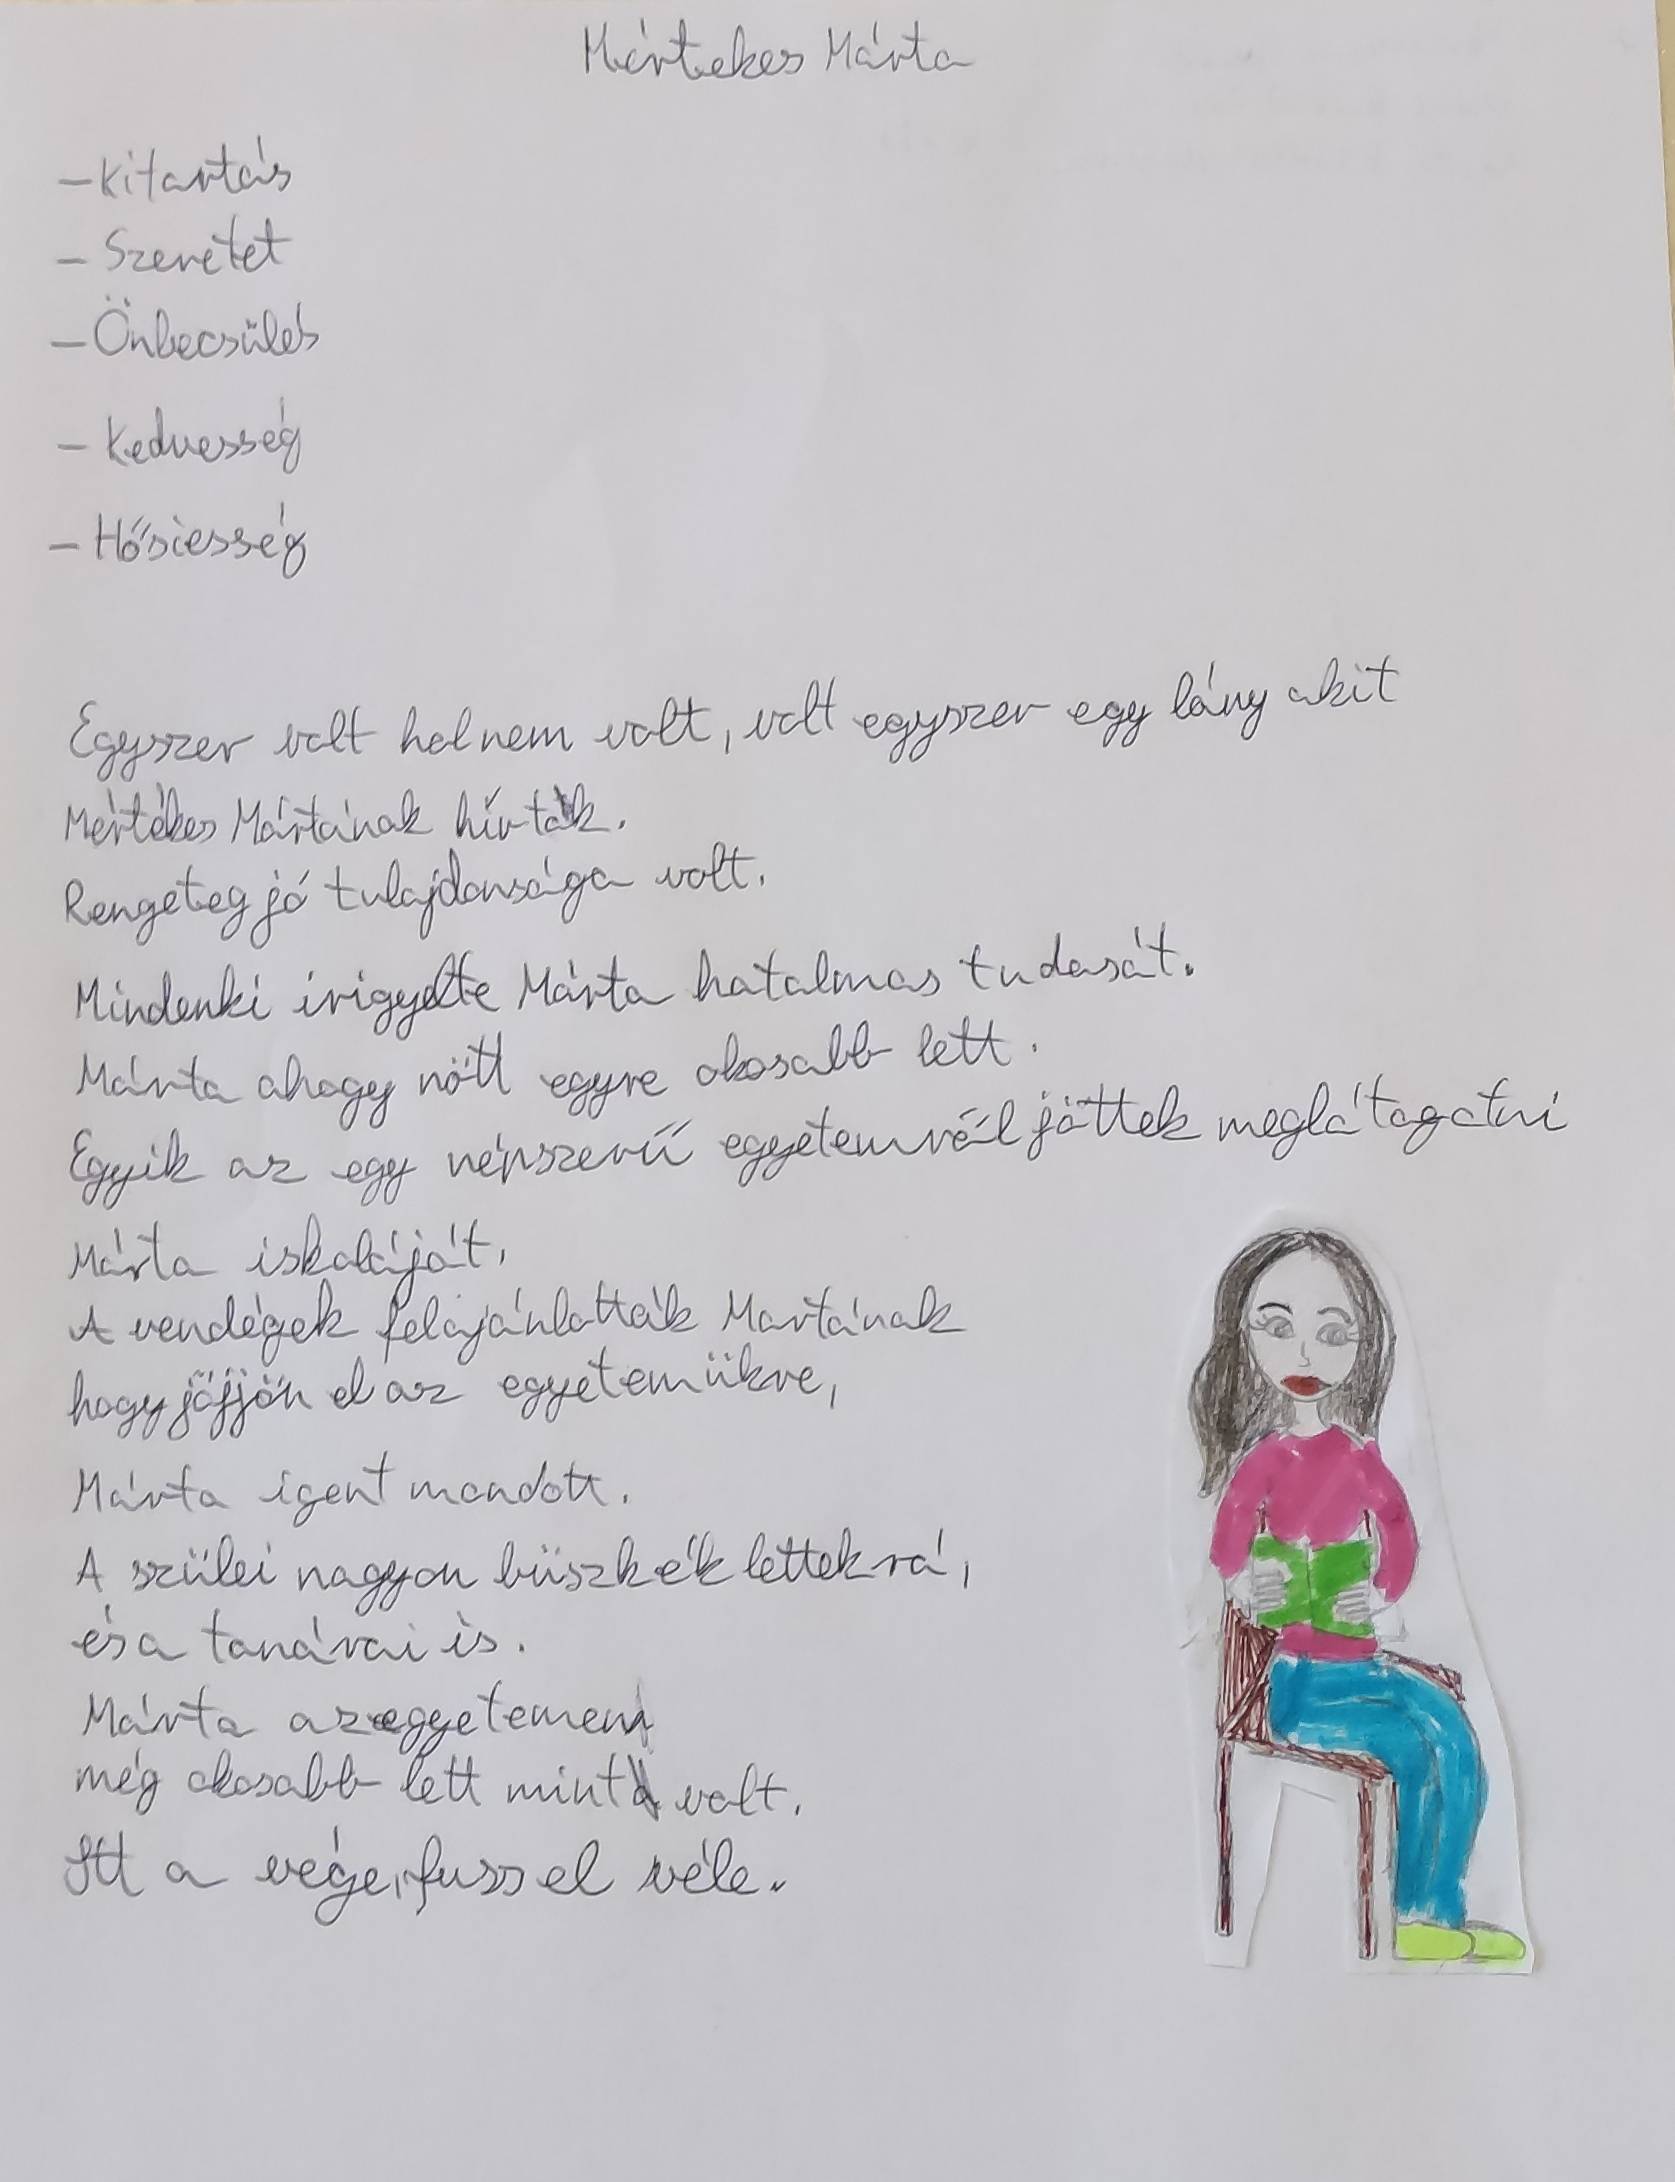 Mértekes Márta
- Kitartás
- Szeretet
- Önbecsülés
- Kedvesség
- Hősiesség
Egyszer volt hol nem volt, volt egyszer egy lány akit
Mértékes Mártának hívták.
Rengeteg jó tulajdonsága volt.
Mindenki irigyelte Márta hatalmas tudasát.
Márta ahogy nőtt egyre okosabb lett.
Egyik az egy népszerű egyetemről jöttek meglátogatni
Márta iskoláját,
A vendégek felajánlották Martának
hogy jöjjön el az egyetemükre,
Márta igent mondott.
A szülei nagyon büszkék lettek rá,
és a tanárai is.
Márta az egyetemen
még okosabb lett mint volt.
Itt a vége, fuss el véle.